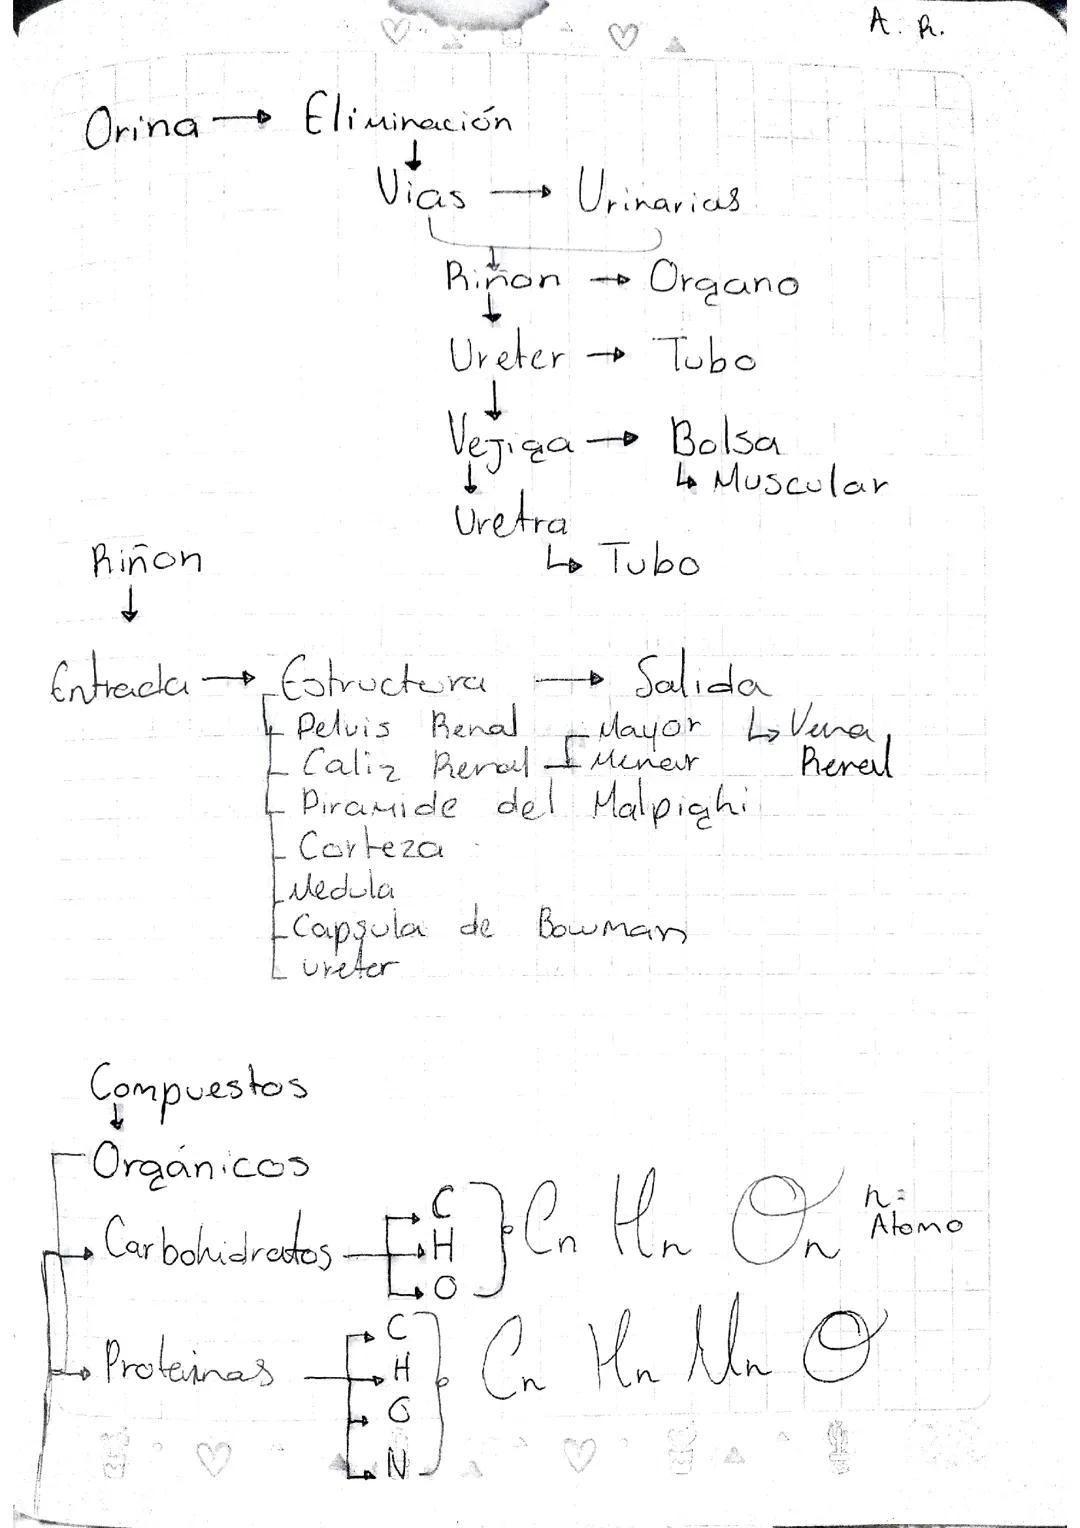 A. R.
Orina → Eliminación
↓
Vias → Urinarias
↓
Riñon → Organo
↓
Ureter → Tubo
↓
Vejiga → Bolsa
↳ Muscular
↓
Uretra
↳ Tubo
Riñon
↓
Entrada → Estructura → Salida
Pelvis Renal
Mayor
↳ Vena
Caliz Renal
Menor
Renal
Piramide del Malpighi
Corteza
Medula
Capsula de Bowman
ureter
Compuestos
↓
Orgánicos
Carbohidratos
C
H
O
Cn Hn On
n=
Atomo
Proteinas
C
H
O
N
Cn Hn Nn O